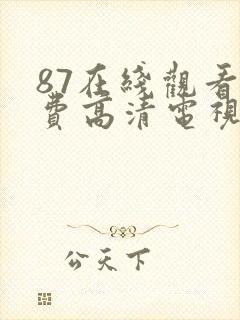 87在綫觀看
費高清電視
公天下